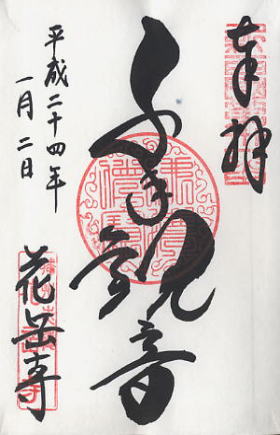 奉拝
千手観音
平成二十四年
一月二日
花岳寺